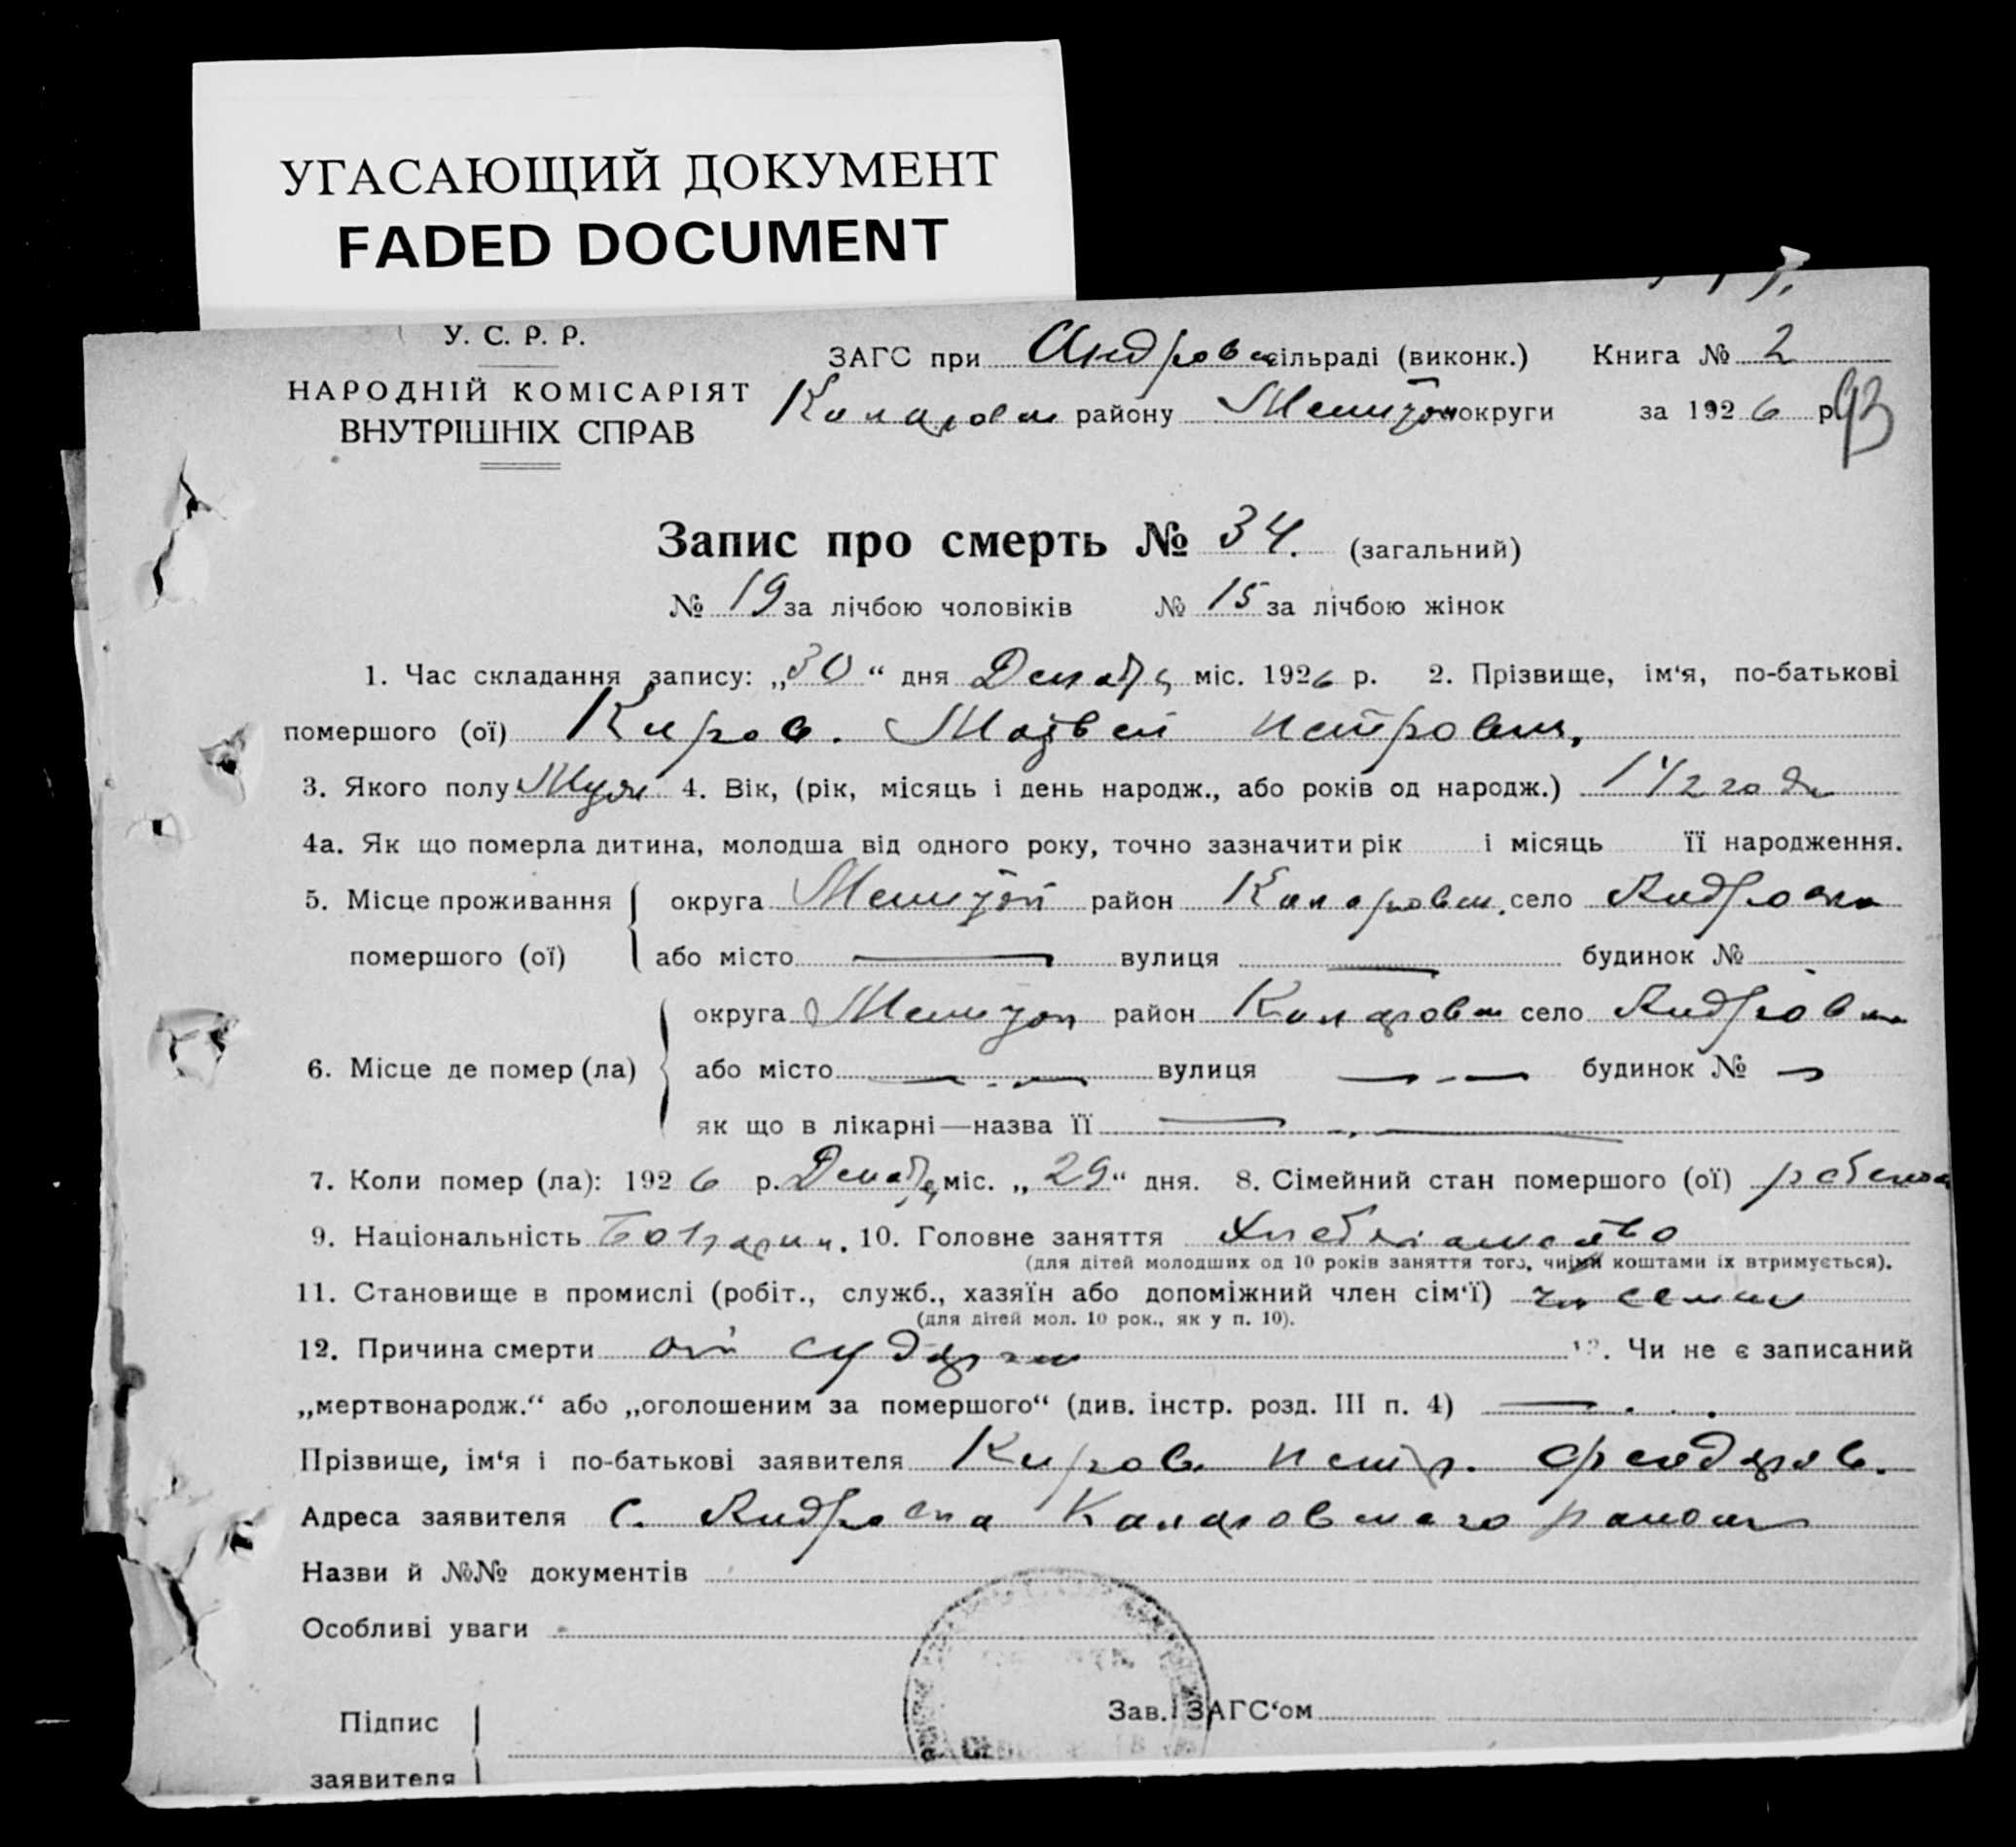 УГАСАЮЩИЙ ДОКУМЕНТ
FADED DOCUMENT
У. С. Р. Р.
НАРОДНІЙ КОМІСАРІЯТ
ВНУТРІШНІХ СПРАВ
ЗАГС при Андровк сільраді (виконк.) Книга № 2
району округи за 1926 р. 93
Запис про смерть № 34. (загальний)
№ 19 за лічбою чоловіків № 15 за лічбою жінок
1. Час складання запису: „30“ дня міс. 1926 р. 2. Прізвище, ім‘я, по-батькові
помершого (ої) Киров. Матвей Петрович,
3. Якого полу Муж 4. Вік, (рік, місяць і день народж., або років од народж.) 1 1/2 года
4а. Як що померла дитина, молодша від одного року, точно зазначити рік і місяць її народження.
5. Місце проживання округа район село Андровка
помершого (ої) або місто — вулиця — будинок №
округа район село
6. Місце де помер (ла) або місто — . — вулиця — - — будинок № —
як що в лікарні—назва її — . —
7. Коли помер (ла): 1926 р. міс. „29“ дня. 8. Сімейний стан помершого (ої)
9. Національність 10. Головне заняття
(для дітей молодших од 10 років заняття того, чиїми коштами їх втримується).
11. Становище в промислі (робіт., служб., хазяїн або допоміжний член сім‘ї) чл семьи
(для дітей мол. 10 рок., як у п. 10).
12. Причина смерти от 13. Чи не є записаний
„мертвонародж.“ або „оголошеним за помершого“ (див. інстр. розд. III п. 4) — . . .
Прізвище, ім‘я і по-батькові заявителя Киров Петр.
Адреса заявителя С. Андровка Коларовского
Назви й №№ документів
Особливі уваги
Підпис
заявителя
Зав. ЗАГС‘ом